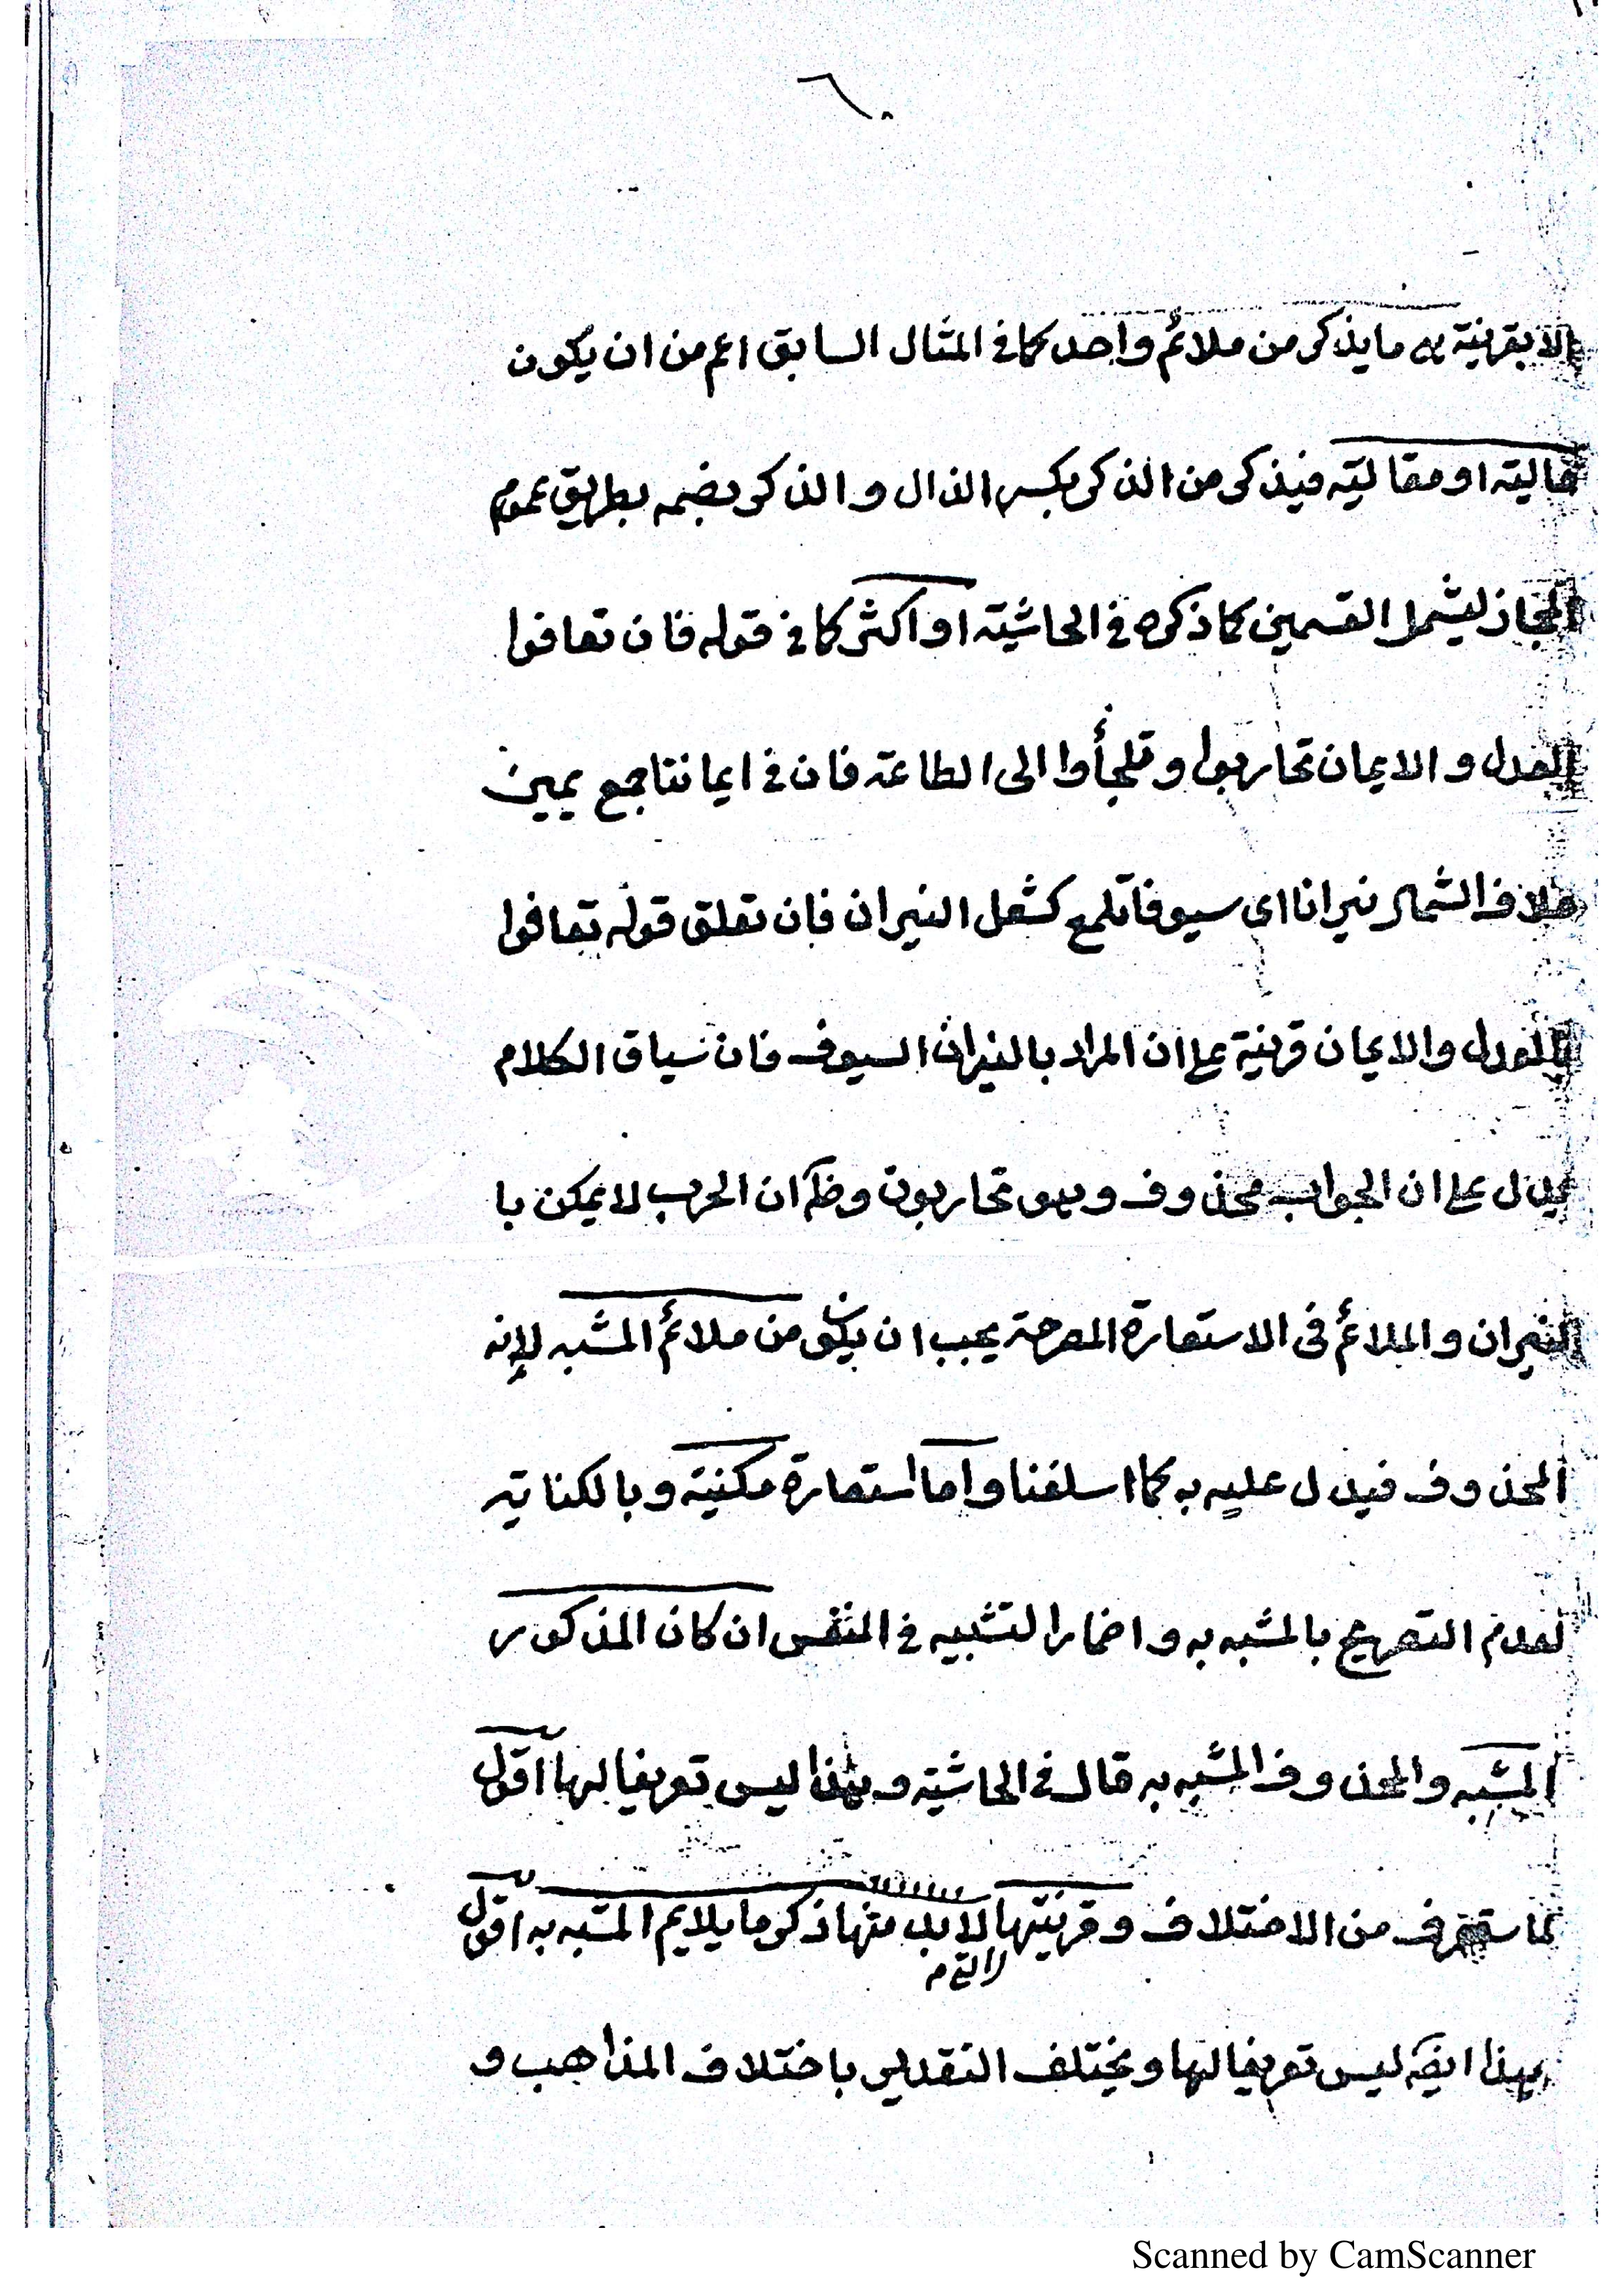 ٦٠
الا بقرينة هى ما يذكر من ملائم واحد كما فى المثال السابق اعم من ان يكون
حالية او مقالية فيذكر من الذكر بكسر الذال و الذكر بضمه بطريق عموم
المجاز ليشمل القسمين كما ذكره فى الحاشية او اكثر كما فى قوله فان تعافوا
العدل و الايمان تحاربوا و تلجأوا الى الطاعة فان فى ايماننا جمع يمين
خلاف الشمال نيرانا اى سيوفا تلمع كشعل النيران فان تعلق قوله تعافوا
بالعدل والايمان قرينة على ان المراد بالنيران السيوف فان سياق الكلام
يدل على ان الجواب محذوف وهو تحاربون وظ ان الحرب لا يمكن با
النيران و الملائم فى الاستعارة المصرحة يجب ان يكون من ملائم المشبه لانه
المحذوف فيدل عليه به كما اسلفنا واما استعارة مكنية و بالكناية
لعدم التصريح بالمشبه به و اضمار التشبيه فى النفس ان كان المذكور
المشبه والمحذوف المشبه به قال فى الحاشية و هذا ليس تعريفا لها اقول
لما ستعرف من الاختلاف و قرينتها لا بد منها ذكر ما يلايم المشبه به اقول
هذا ايض ليس تعريفا لها و يختلف التقدير باختلاف المذاهب و
Scanned by CamScanner